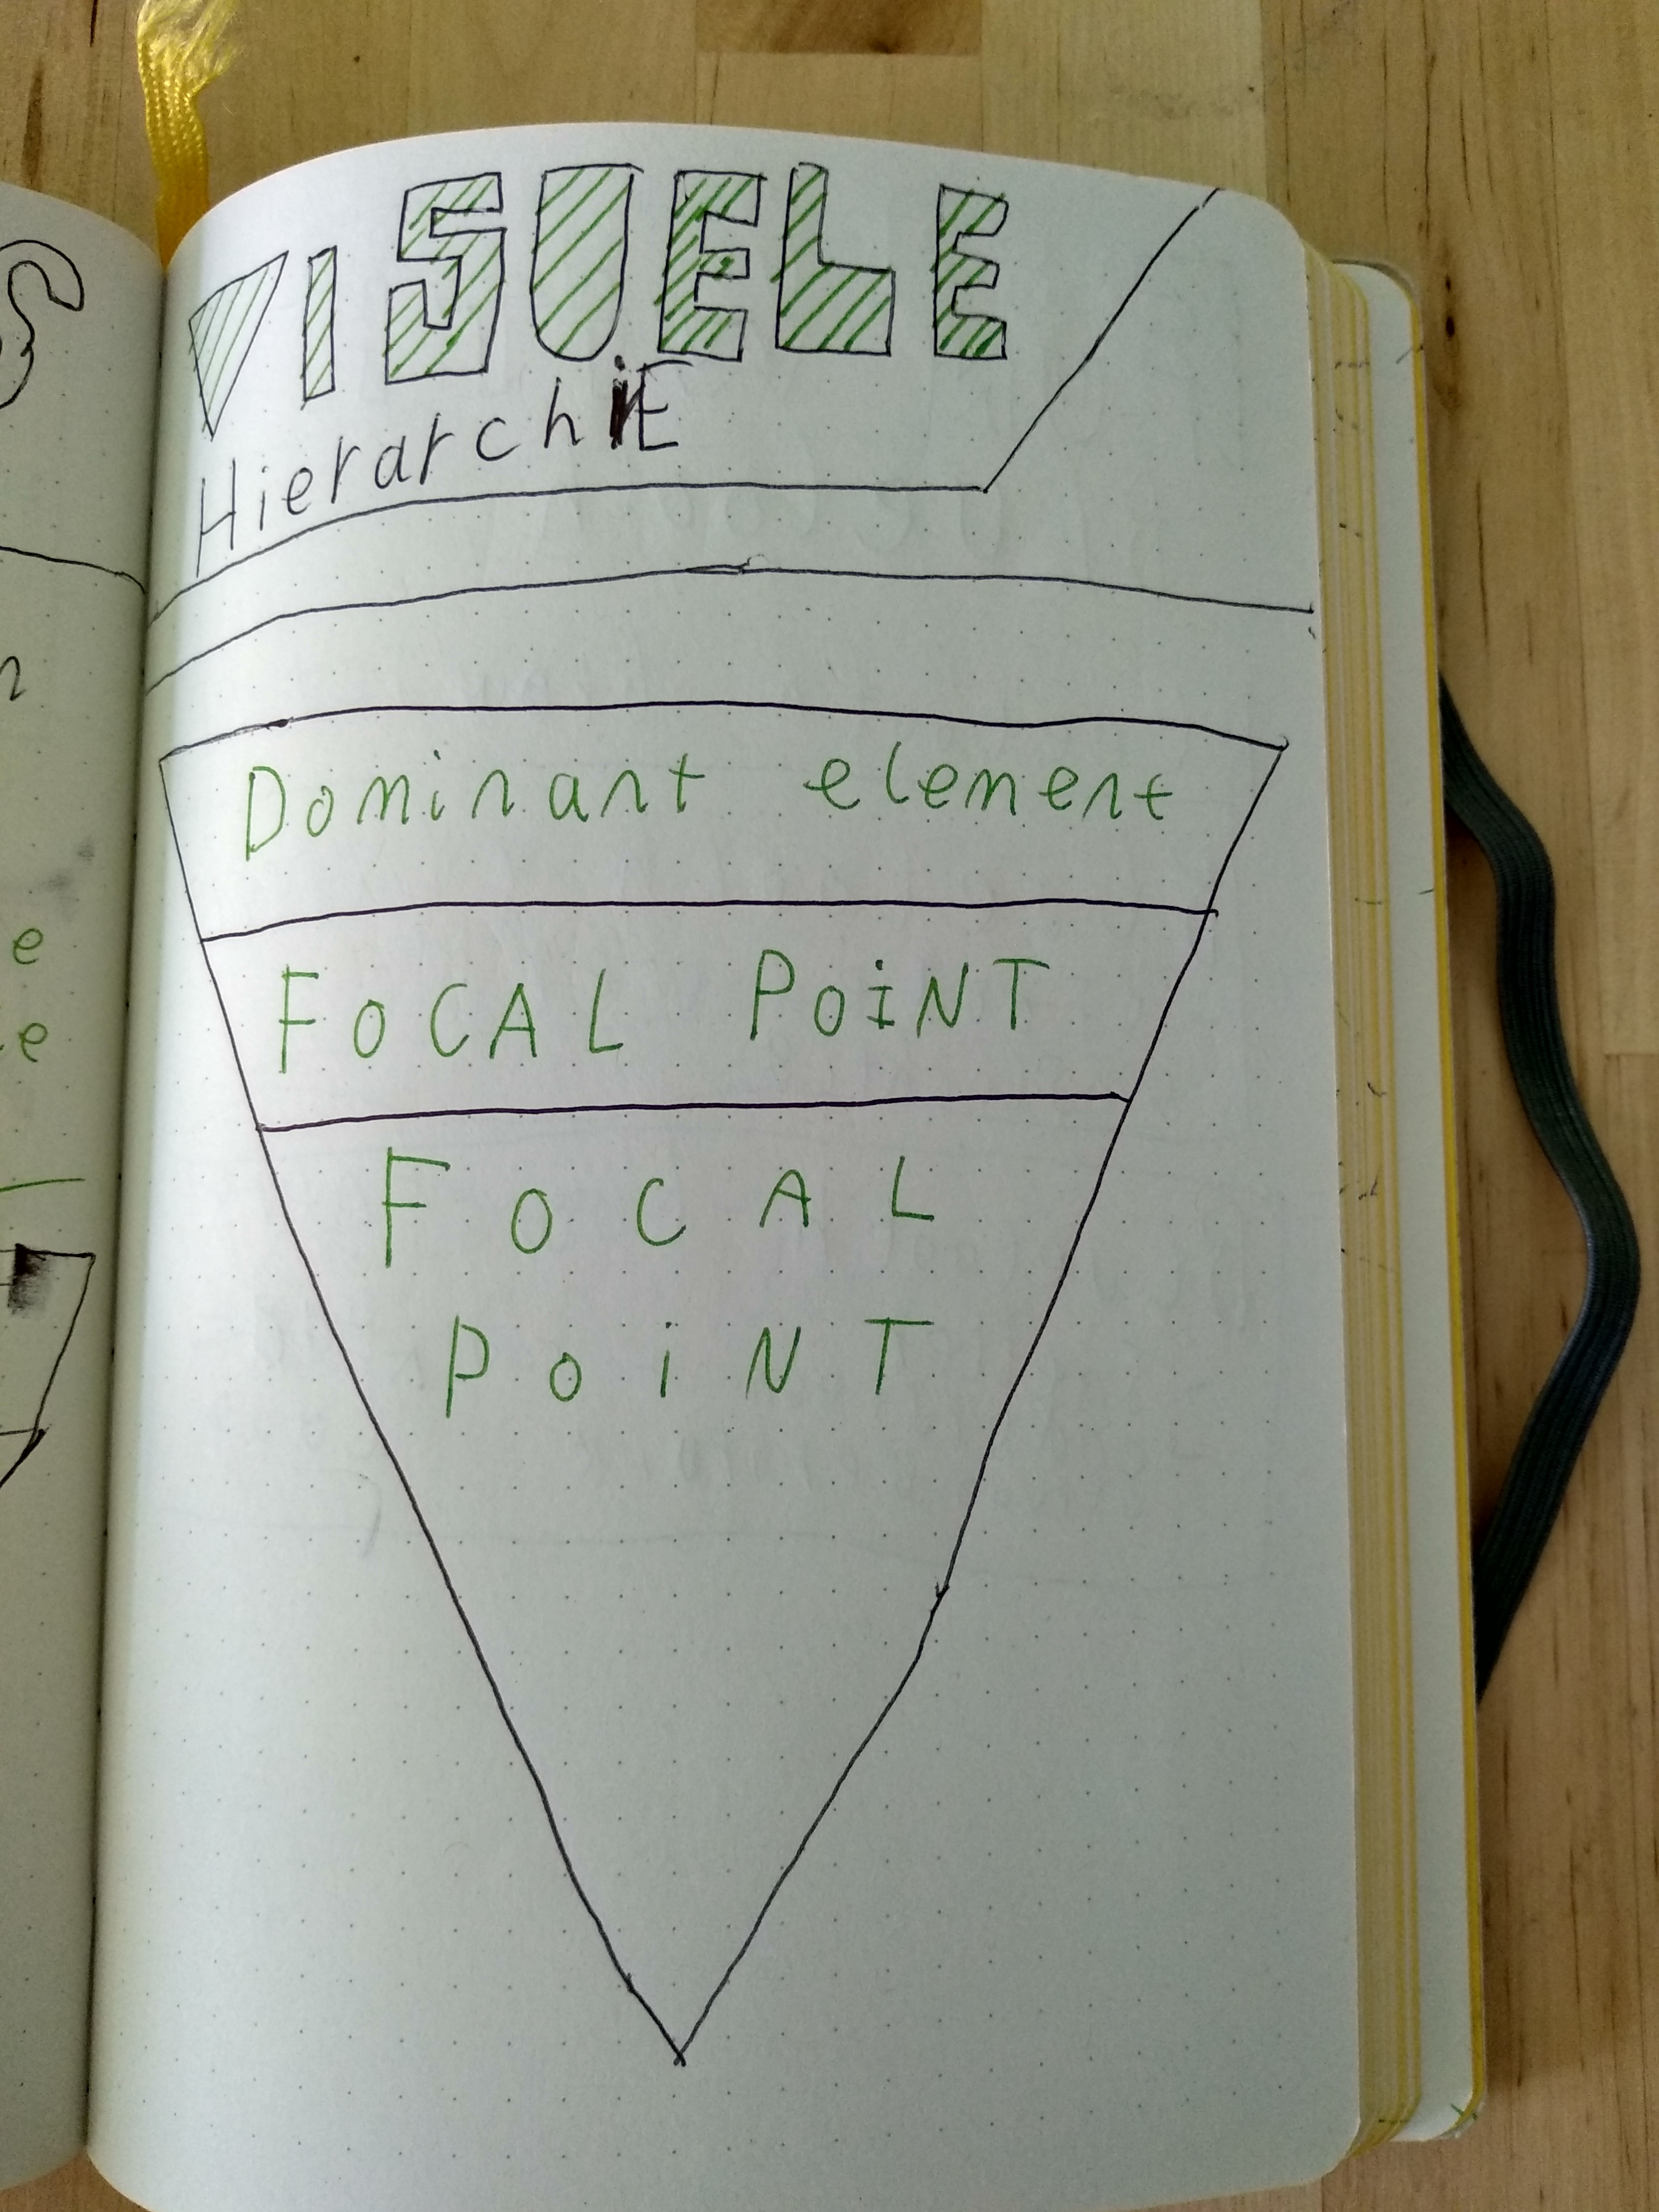 VISUELE
HierarchiE
Dominant element
FOCAL POiNT
FOCAL
POiNT
e
e